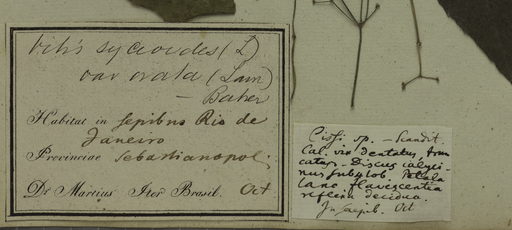 Vitis sycioides (L)
var ovata (Lam)
— Baker
Habitat in sepibus Rio de
Janeiro
Provinciae Sebastianopol.
Dr Martius Iter Brasil. Oct
Cissi sp. — Scandit.
Cal. vix dentatus, trun
catus — Discus calyci-
nus subylob. Petala
lano flavescentia
reflexa decidua.
In saepib. Oct